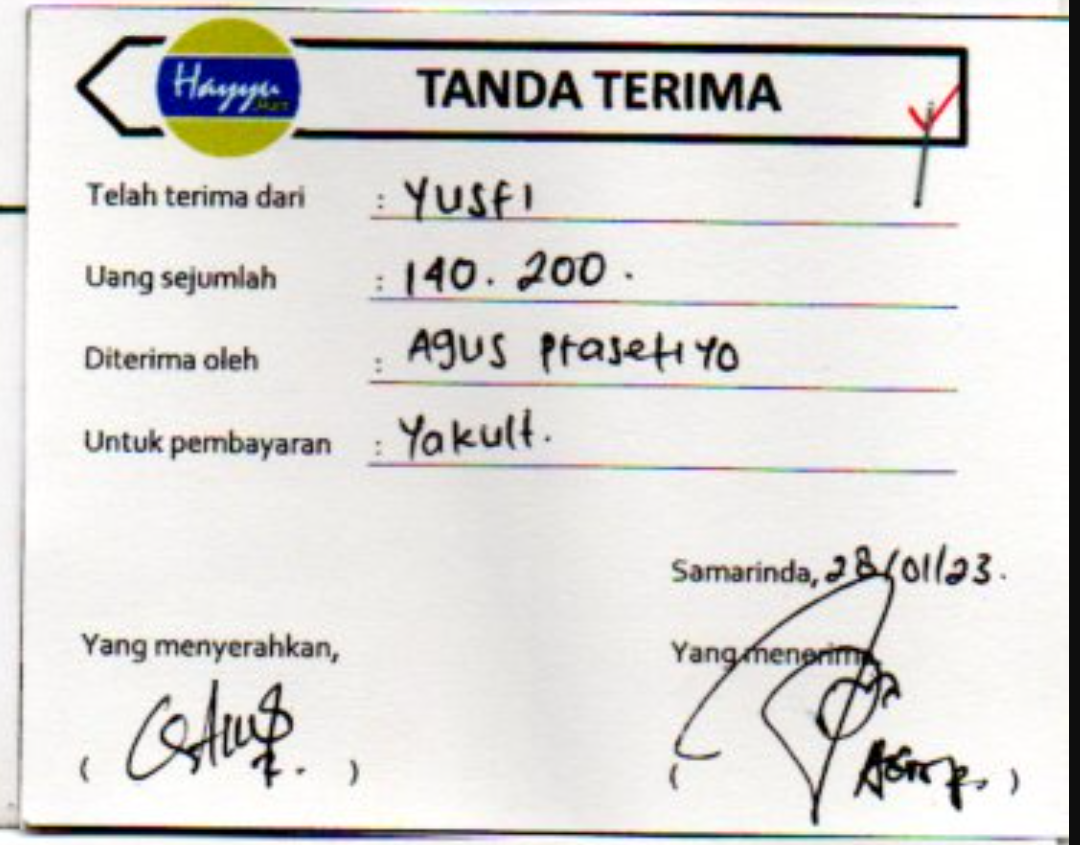 Hayyu
TANDA TERIMA
Telah terima dari : Yusfi
Uang sejumlah : 140.200.
Diterima oleh : Agus prasetiyo
Untuk pembayaran : Yakult.
Samarinda, 28/01/23.
Yang menyerahkan,
Yang menerima
( )
( )